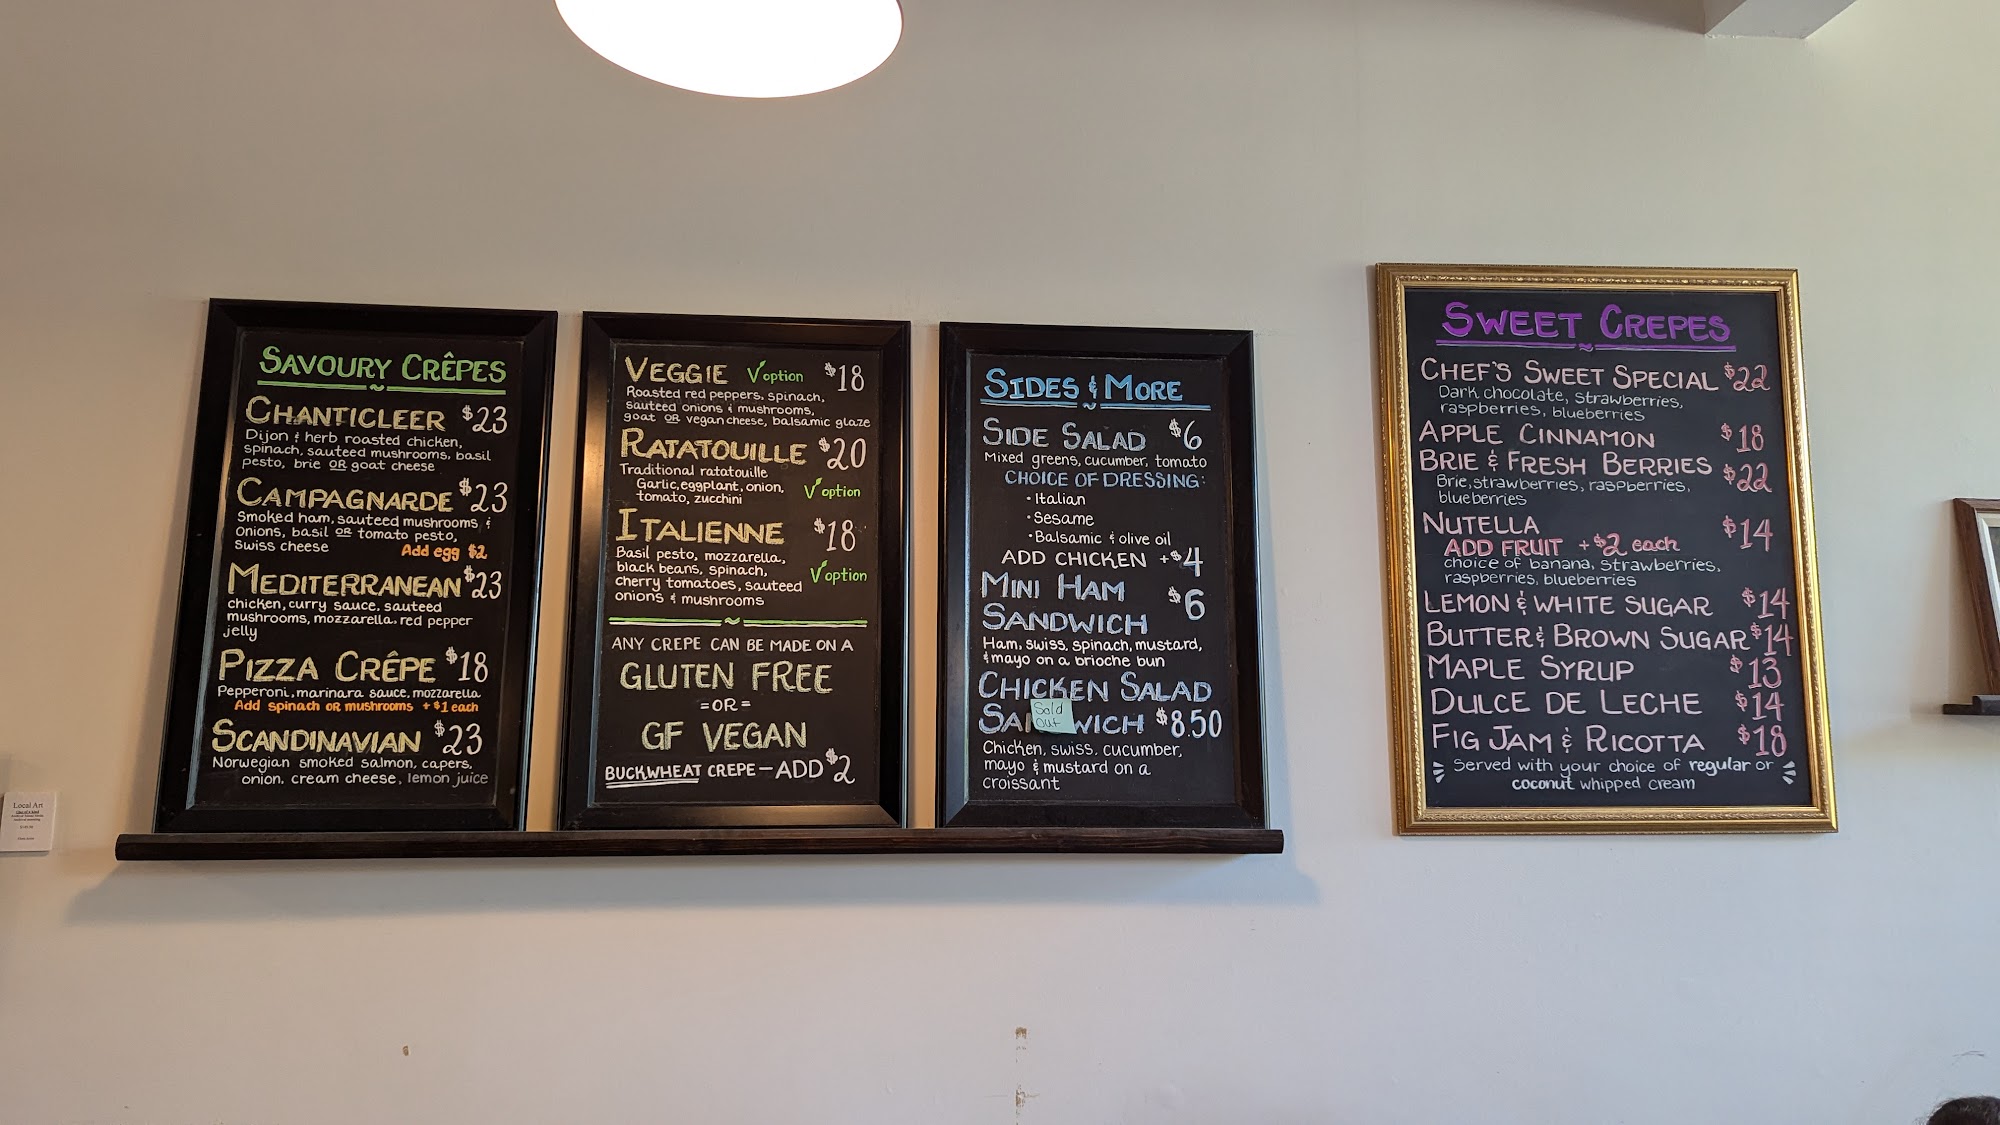 SAVOURY CRÊPES
CHANTICLEER $23
Dijon & herb roasted chicken,
spinach, sauteed mushrooms, basil
pesto, brie OR goat cheese
CAMPAGNARDE $23
Smoked ham, sauteed mushrooms &
Onions, basil OR tomato pesto,
Swiss cheese Add egg $2
MEDITERRANEAN $23
chicken, curry sauce, sauteed
mushrooms, mozzarella, red pepper
jelly
PIZZA CRÊPE $18
Pepperoni, marinara sauce, mozzarella
Add spinach OR mushrooms + $1 each
SCANDINAVIAN $23
Norwegian smoked salmon, capers,
onion, cream cheese, lemon juice
VEGGIE V option $18
Roasted red peppers, spinach,
sauteed onions & mushrooms,
goat OR vegan cheese, balsamic glaze
RATATOUILLE $20
Traditional ratatouille
Garlic, eggplant, onion,
tomato, zucchini V option
ITALIENNE $18
Basil pesto, mozzarella,
black beans, spinach,
cherry tomatoes, sauteed
onions & mushrooms V option
ANY CREPE CAN BE MADE ON A
GLUTEN FREE
=OR=
GF VEGAN
BUCKWHEAT CREPE - ADD $2
SIDES & MORE
SIDE SALAD $6
Mixed greens, cucumber, tomato
CHOICE OF DRESSING:
• Italian
• Sesame
• Balsamic & olive oil
ADD CHICKEN +$4
MINI HAM
SANDWICH $6
Ham, swiss, spinach, mustard,
& mayo on a brioche bun
CHICKEN SALAD
SANDWICH $8.50
Sold
Out
Chicken, swiss, cucumber,
mayo & mustard on a
croissant
SWEET CREPES
CHEF'S SWEET SPECIAL $22
Dark chocolate, strawberries,
raspberries, blueberries
APPLE CINNAMON $18
BRIE & FRESH BERRIES $22
Brie, strawberries, raspberries,
blueberries
NUTELLA $14
ADD FRUIT +$2 each
choice of banana, strawberries,
raspberries, blueberries
LEMON & WHITE SUGAR $14
BUTTER & BROWN SUGAR $14
MAPLE SYRUP $13
DULCE DE LECHE $14
FIG JAM & RICOTTA $18
Served with your choice of regular or
coconut whipped cream
Local Art